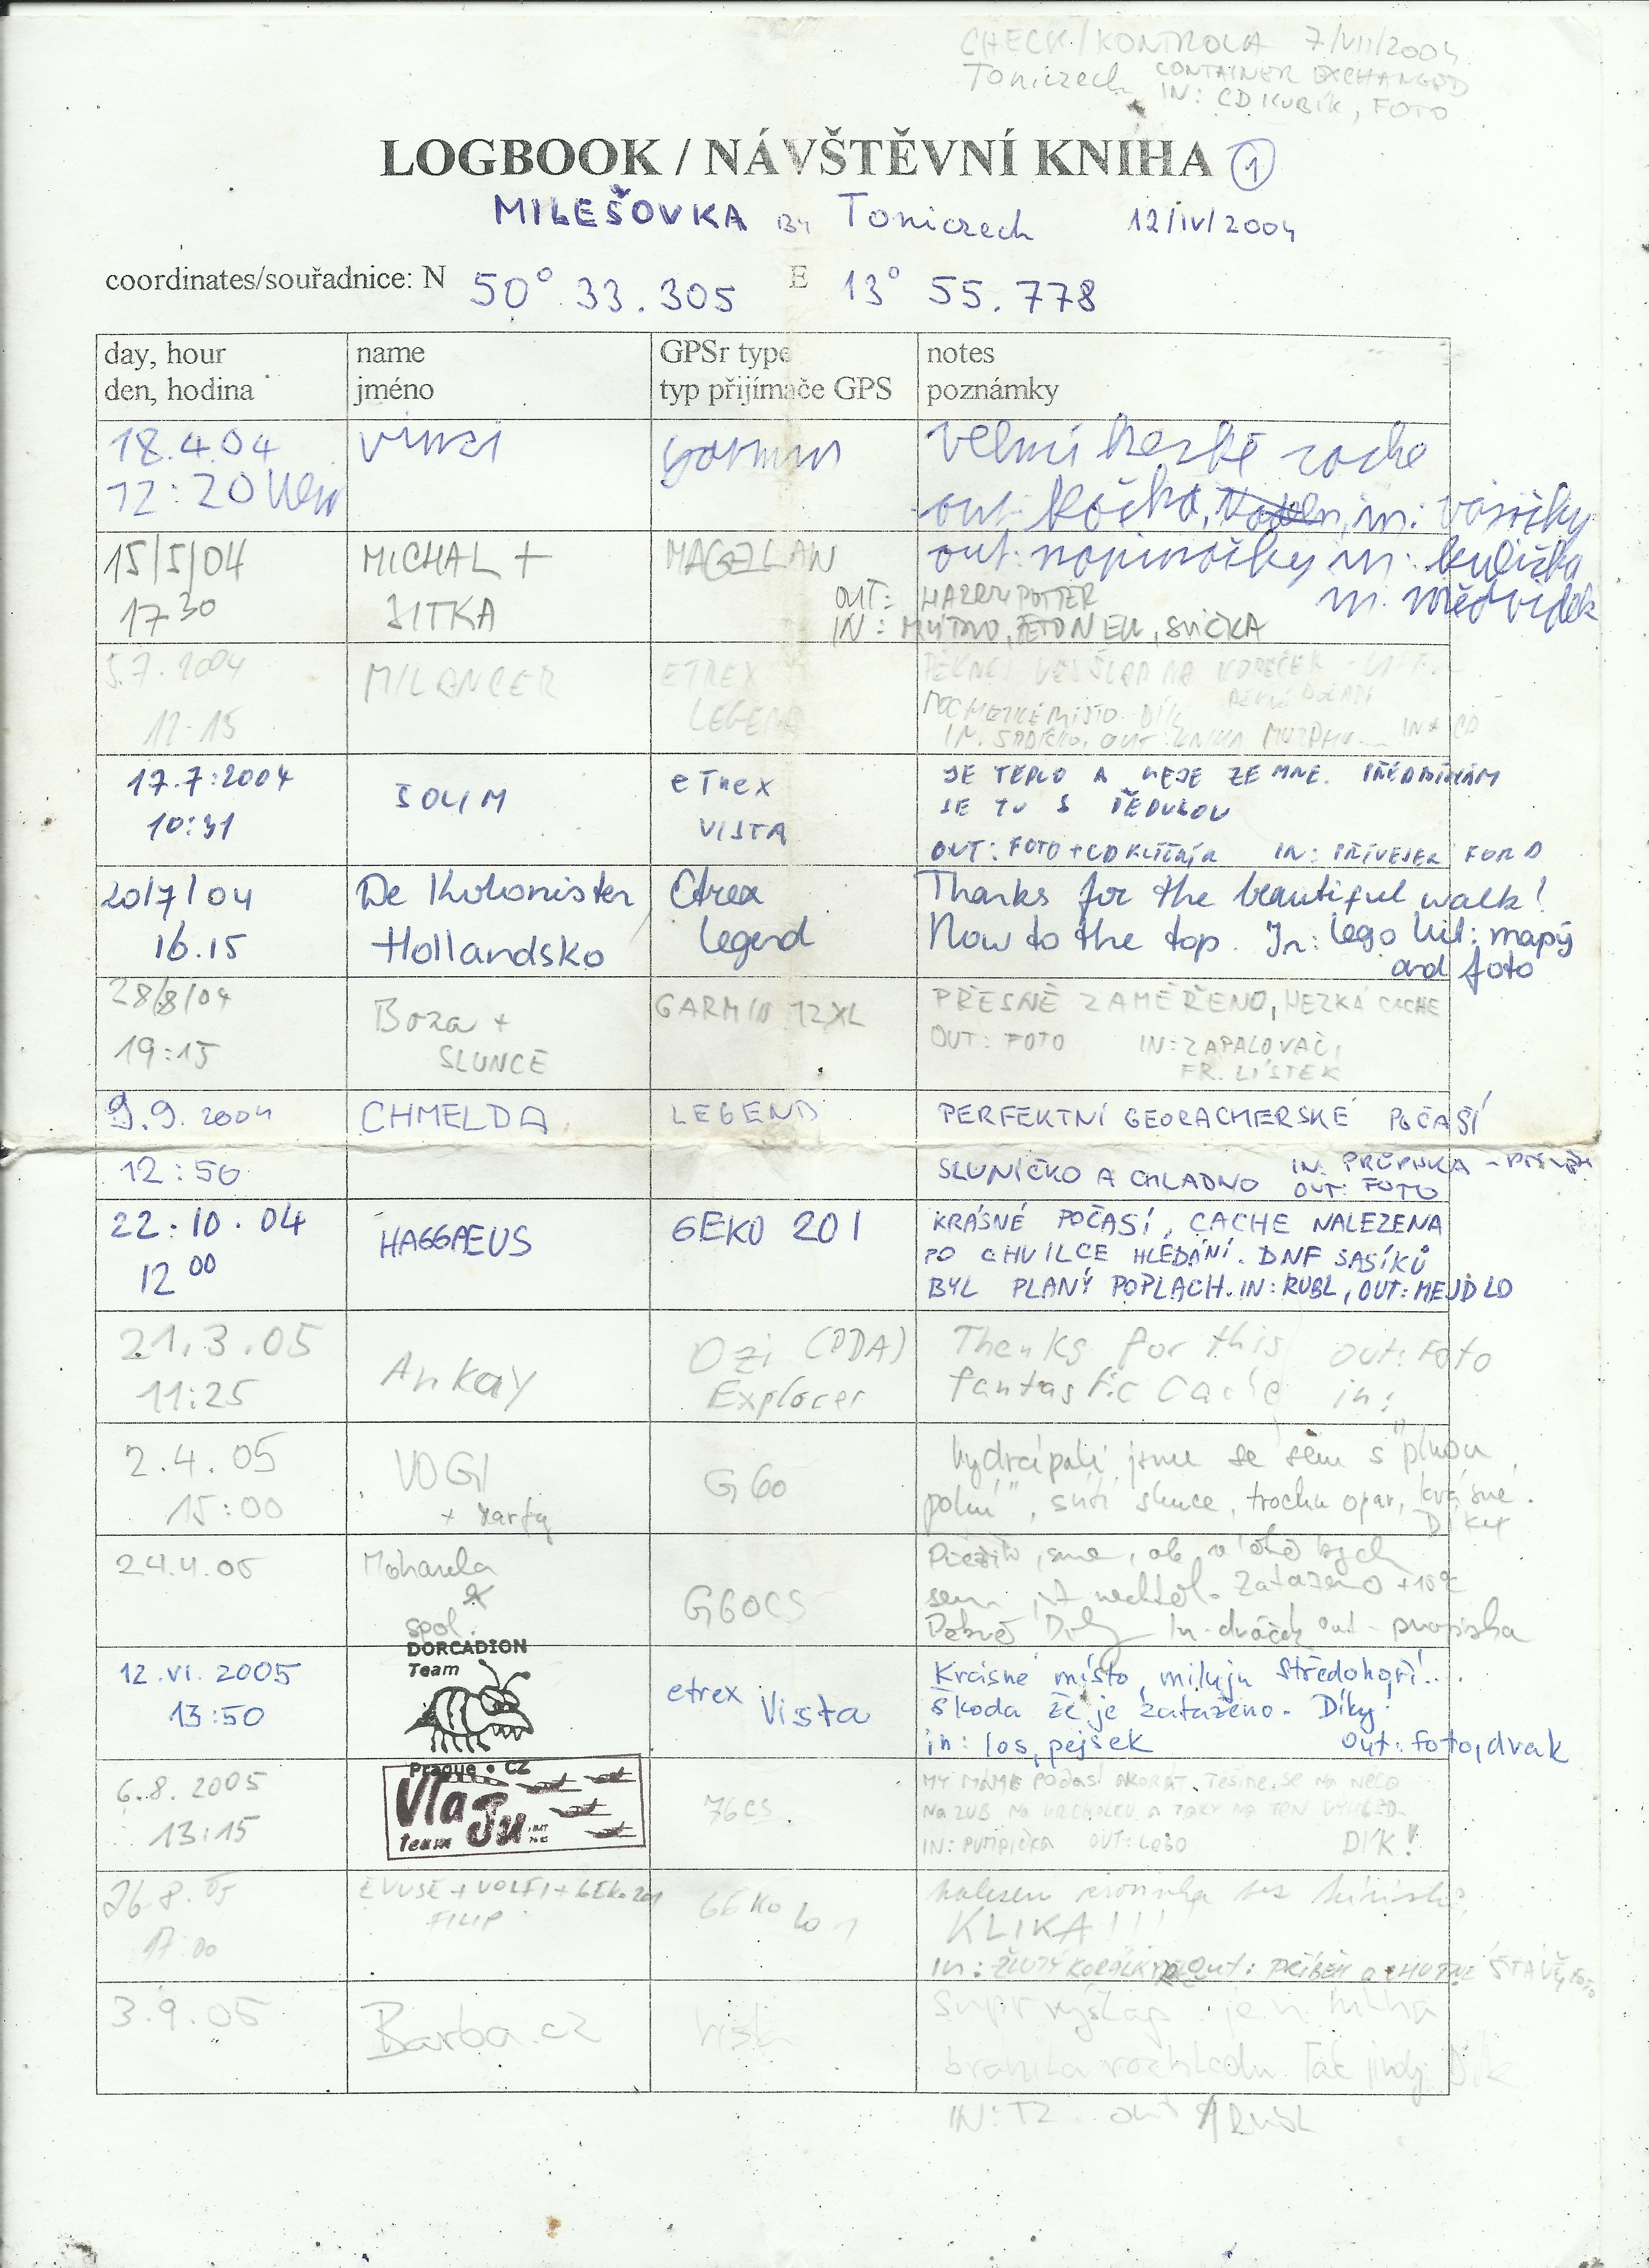 CHECK/KONTROLA 7/VII/2004
Toniczech CONTAINER EXCHANGED
IN: CD KUBÍK, FOTO
LOGBOOK / NÁVŠTĚVNÍ KNIHA 1
MILEŠOVKA BY Toniczech 12/IV/2004
coordinates/souřadnice: N 50° 33.305 E 13° 55.778
day, hour name GPSr type notes
den, hodina jméno typ přijímače GPS poznámky
18.4.04 vinci garmin velmi hezké cache
12:20 out: kočka, in:
out: in: kulička
in: medvídek
15/5/04 MICHAL + MAGELLAN
1730 JITKA OUT: HARRY POTTER
IN: MÝDLO, ŽETON EU, SVÍČKA
5.7.2004 MILANCER ETREX
LEGEND
MOC HEZKÉ MÍSTO. DÍK
OUT: KNIHA IN: CD
17.7.2004 eTrex JE TEPLO A LEJE ZE MNE. PŘEDBÍHÁM
10:31 VISTA JE TU S
OUT: FOTO + CD IN: PŘÍVĚSEK FORD
20/7/04 De Kolonisten Etrex Thanks for the beautiful walk!
16.15 Hollandsko Legend Now to the top. In: lego Uit: mapy
and foto
28/8/04 Boza + GARMIN 12XL PŘESNĚ ZAMĚŘENO, HEZKÁ CACHE
19:15 SLUNCE OUT: FOTO IN: ZAPALOVAČ,
FR. LÍSTEK
9.9.2004 CHMELDA LEGEND PERFEKTNÍ GEOCACHERSKÉ POČASÍ
12:50 SLUNÍČKO A CHLADNO IN: PROPISKA
OUT: FOTO
22.10.04 HAGGAEUS GEKO 201 KRÁSNÉ POČASÍ, CACHE NALEZENA
12 00 PO CHVILCE HLEDÁNÍ. DNF SASÍKŮ
BYL PLANÝ POPLACH. IN: RUBL, OUT: MEJDLO
21.3.05 Ankay Ozi (PDA) Thanks for this out: Foto
11:25 Explorer fantastic Cache in:
2.4.05 VOGI G60 Vydrápali jsme se sem s "plnou
15:00 + polní", svítí slunce, trochu opar, krásné.
Díky
24.4.05 Moharela
& G60CS
spol. Zataženo +15°C
In-dráček out-propiska
DORCADION
Team
Prague • CZ
12.VI.2005 etrex Vista Krásné místo, miluju Středohoří!...
13:50 Škoda že je zataženo. Díky!
in: los, pejsek out: foto, drak
Vlaju
team
6.8.2005 76CS MY MÁME POČASÍ AKORÁT. TĚŠÍME SE NA NĚCO
13:15 NA ZUB NA VRCHOLKU A TAKY NA TEN VÝHLED
IN: PUMPIČKA OUT: LEGO DÍK!
26.8.05 EVUSE + VOLFI + GEKO 201 GEKO 201
17:00 FILIP KLIKA!!!
In: ŽLUTÝ KORÁLEK Out: PŘÍBĚH
3.9.05 Barba.cz Vista Supr výšlap. jen mlha
bránila rozhledu. Tak jindy Dík
IN: TZ out RUBL